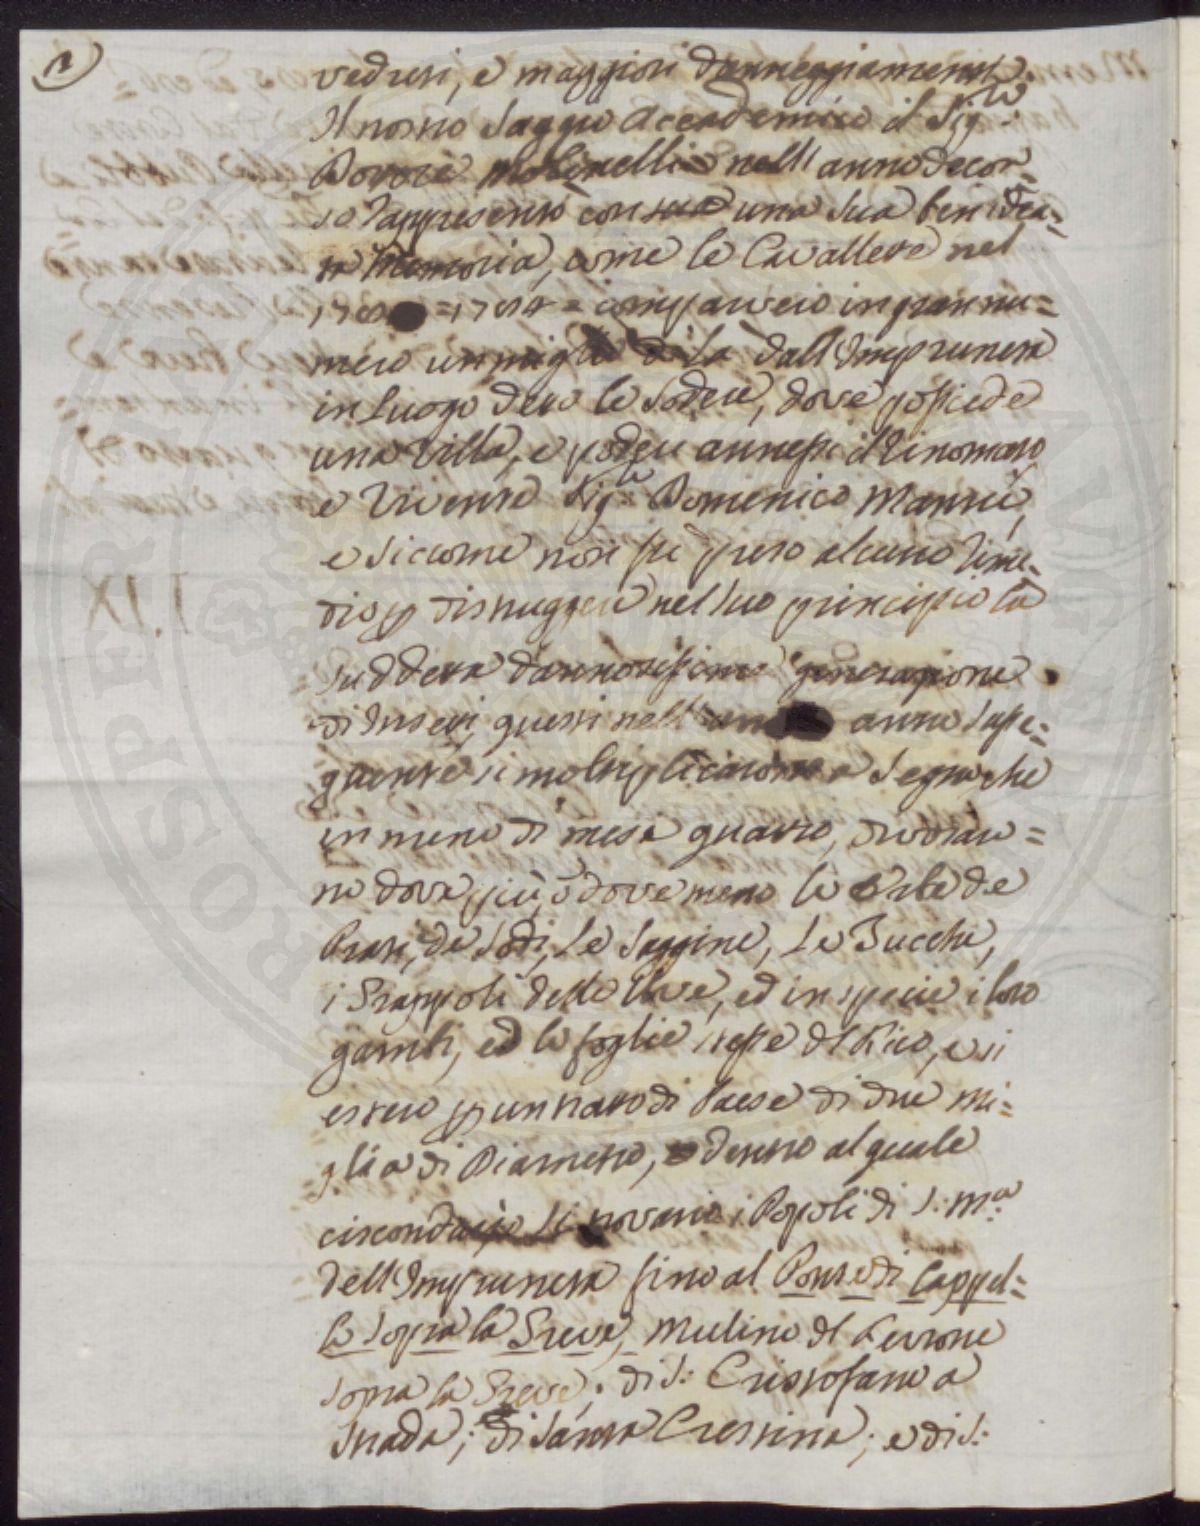 veduti, e maggiori danneggiamenti.
Il nostro Saggio Accademico il Sig.re
Dottore Molinelli nell'anno decor=
so rappresentò con una Sua ben idea=
ta Memoria, come le Cavallette nel
=1784= comparvero in gran nu=
mero un miglio di Là dall'Impruneta
in Luogo detto le Sodere, dove possiede
una Villa, e poderi annessi il rinomato
e Vivente Sig.re Domenico Manni,
e siccome non fù preso alcuno rime=
dio p distruggere nel suo principio la
Suddetta dannosissima generazione
di Insetti, questi nell' anno susse=
guente si moltiplicarono a Segno che
in meno di mesi quattro, divoraro=
no dove più, ò dove meno le Erbe de
Prati, de Sodi, Le Saggine, Le Zucche,
i Grappoli delle Uve, ed in specie i loro
gambi, ed le foglie stesse del Fico, e si
estero p un tratto di Paese di due mi=
glia di Diametro, dentro al quale
circondario si trovano i Popoli di S. M.a
dell'Impruneta fino al Ponte di Cappel=
lo sopra la Greve, Mulino del Ferrone
sopra la Greve; di S. Cristofano a
Strada; di Santa Cristina; e di S.